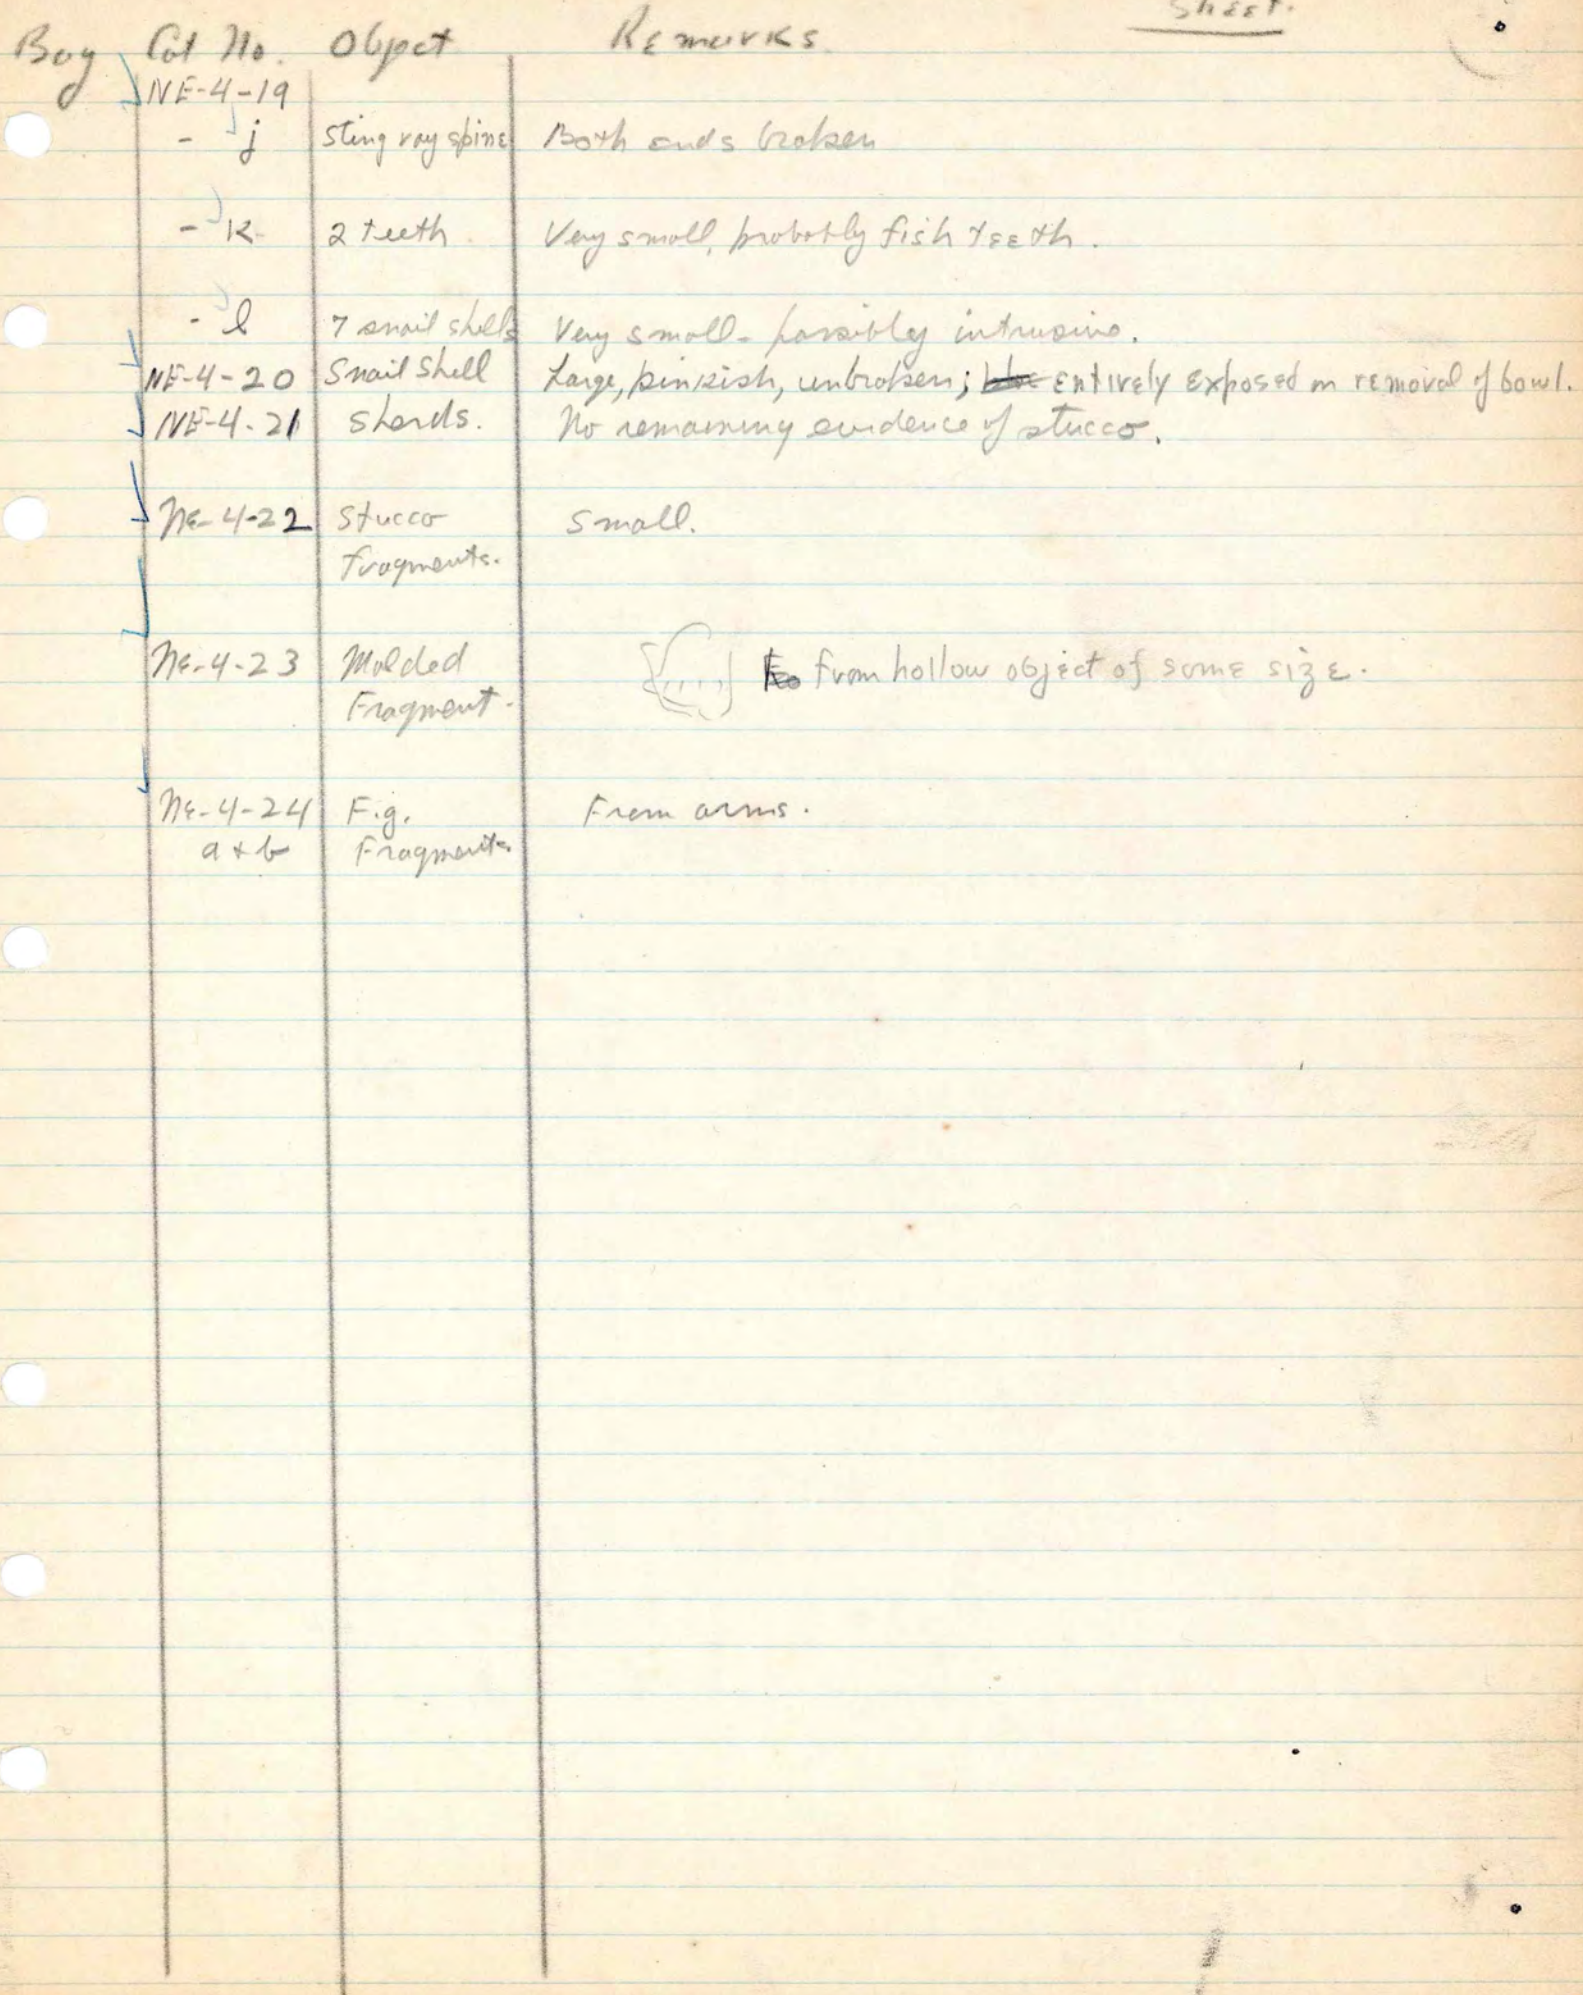 Sheet.
Bag Cat No. Object Remarks
NE-4-19
- j Sting ray spine Both ends broken
- k 2 teeth. Very small, probably fish teeth.
- l 7 snail shells Very small - possibly intrusive.
NE-4-20 Snail Shell Large, pinkish, unbroken; entirely exposed on removal of bowl.
NE-4-21 sherds. No remaining evidence of stucco.
NE-4-22 Stucco small.
fragments.
NE-4-23 Molded from hollow object of some size.
Fragment.
NE-4-24 Fig. From arms.
a + b Fragments